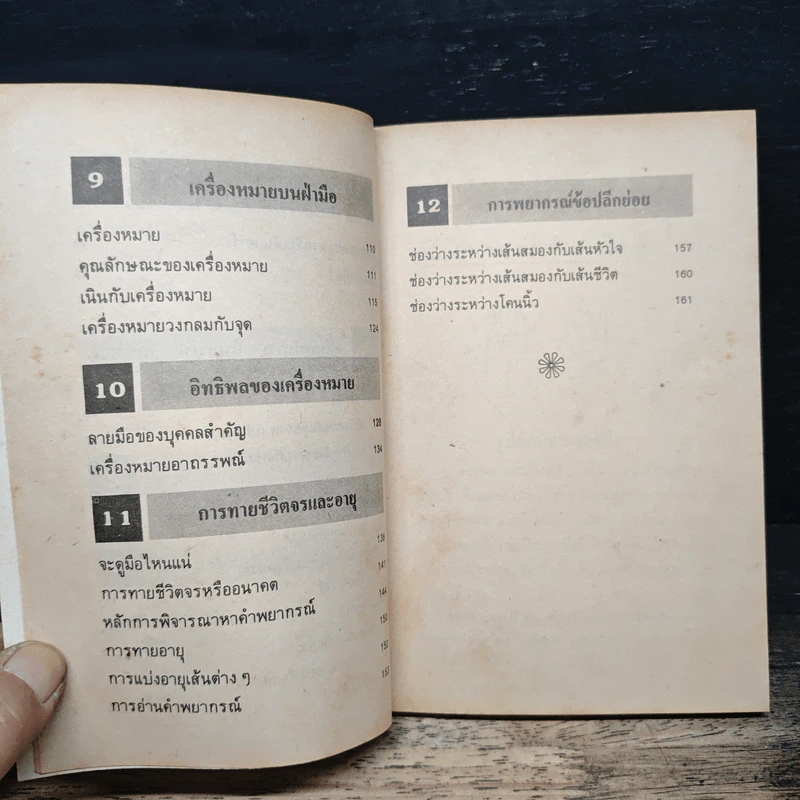 9 เครื่องหมายบนฝ่ามือ
เครื่องหมาย 110
คุณลักษณะของเครื่องหมาย 111
เนินกับเครื่องหมาย 115
เครื่องหมายวงกลมกับจุด 124
10 อิทธิพลของเครื่องหมาย
ลายมือของบุคคลสำคัญ 128
เครื่องหมายอาถรรพณ์ 134
11 การทายชีวิตจรและอายุ
จะดูมือไหนแน่ 138
การทายชีวิตจรหรืออนาคต 141
หลักการพิจารณาหาคำพยากรณ์ 144
การทายอายุ 150
การแบ่งอายุเส้นต่าง ๆ 152
การอ่านคำพยากรณ์ 153
12 การพยากรณ์ข้อปลีกย่อย
ช่องว่างระหว่างเส้นสมองกับเส้นหัวใจ 157
ช่องว่างระหว่างเส้นสมองกับเส้นชีวิต 160
ช่องว่างระหว่างโคนนิ้ว 161